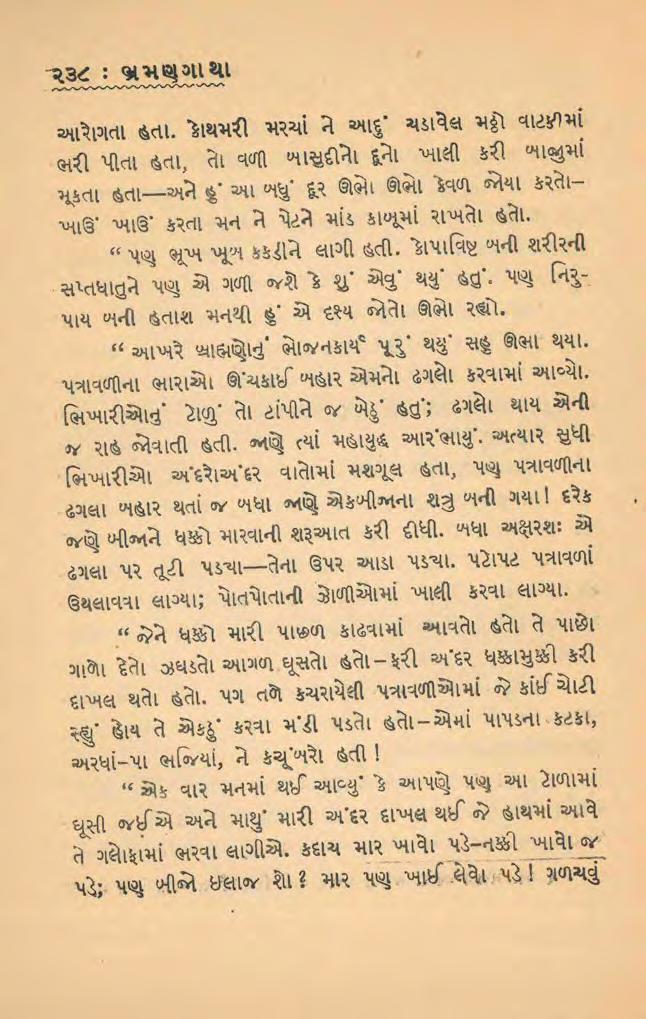 ૨૩૮ : ભ્રમણગાથા
આરોગતા હતા. કોથમરી મરચાં ને આદું ચડાવેલ મઠ્ઠો વાટકીમાં
ભરી પીતા હતા, તો વળી બાસુદીનો દૂનો ખાલી કરી બાજુમાં
મૂકતા હતા—અને હું આ બધું દૂર ઊભો ઊભો કેવળ જોયા કરતો–
ખાઉં ખાઉં કરતા મન ને પેટને માંડ કાબૂમાં રાખતો હતો.
“ પણ ભૂખ ખૂબ કકડીને લાગી હતી. કોપાવિષ્ટ બની શરીરની
સપ્તધાતુને પણ એ ગળી જશે કે શું એવું થયું હતું. પણ નિરુ-
પાય બની હતાશ મનથી હું એ દૃશ્ય જોતો ઊભો રહ્યો.
“ આખરે બ્રાહ્મણોનું ભોજનકાર્ય પૂરું થયું સહુ ઊભા થયા.
પત્રાવળીના ભારાઓ ઊંચકાઈ બહાર એમનો ઢગલો કરવામાં આવ્યો.
ભિખારીઓનું ટોળું તો ટાંપીને જ બેઠું હતું; ઢગલો થાય એની
જ રાહ જોવાતી હતી. જાણે ત્યાં મહાયુદ્ધ આરંભાયું. અત્યાર સુધી
ભિખારીઓ અંદરોઅંદર વાતોમાં મશગૂલ હતા, પણ પત્રાવળીના
ઢગલા બહાર થતાં જ બધા જાણે એકબીજાના શત્રુ બની ગયા! દરેક
જણે બીજાને ધક્કો મારવાની શરૂઆત કરી દીધી. બધા અક્ષરશઃ એ
ઢગલા પર તૂટી પડ્યા—તેના ઉપર આડા પડ્યા. પટોપટ પત્રાવળાં
ઉથલાવવા લાગ્યા; પોતપોતાની ઝોળીઓમાં ખાલી કરવા લાગ્યા.
“ જેને ધક્કો મારી પાછળ કાઢવામાં આવતો હતો તે પાછો
ગાળો દેતો ઝઘડતો આગળ ઘૂસતો હતો–ફરી અંદર ધક્કામુક્કી કરી
દાખલ થતો હતો. પગ તળે કચરાયેલી પત્રાવળીઓમાં જે કાંઈ ચોટી
રહ્યું હોય તે એકઠું કરવા મંડી પડતો હતો–એમાં પાપડના કટકા,
અરધાં–પા ભજિયાં, ને કચૂંબરો હતી !
“ એક વાર મનમાં થઈ આવ્યું કે આપણે પણ આ ટોળામાં
ઘૂસી જઈએ અને માથું મારી અંદર દાખલ થઈ જે હાથમાં આવે
તે ગલોફામાં ભરવા લાગીએ. કદાચ માર ખાવો પડે–નક્કી ખાવો જ
પડે; પણ બીજો ઇલાજ શો ? માર પણ ખાઈ લેવો પડે ! ગળચવું